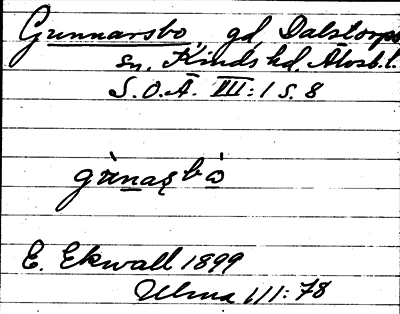 Gunnarsbo, gd, Dalstorps
sn, Kinds hd, Älvsb. l.
S.O.Ä. III:1 s. 8
E. Ekwall 1899
Ulma 111:78